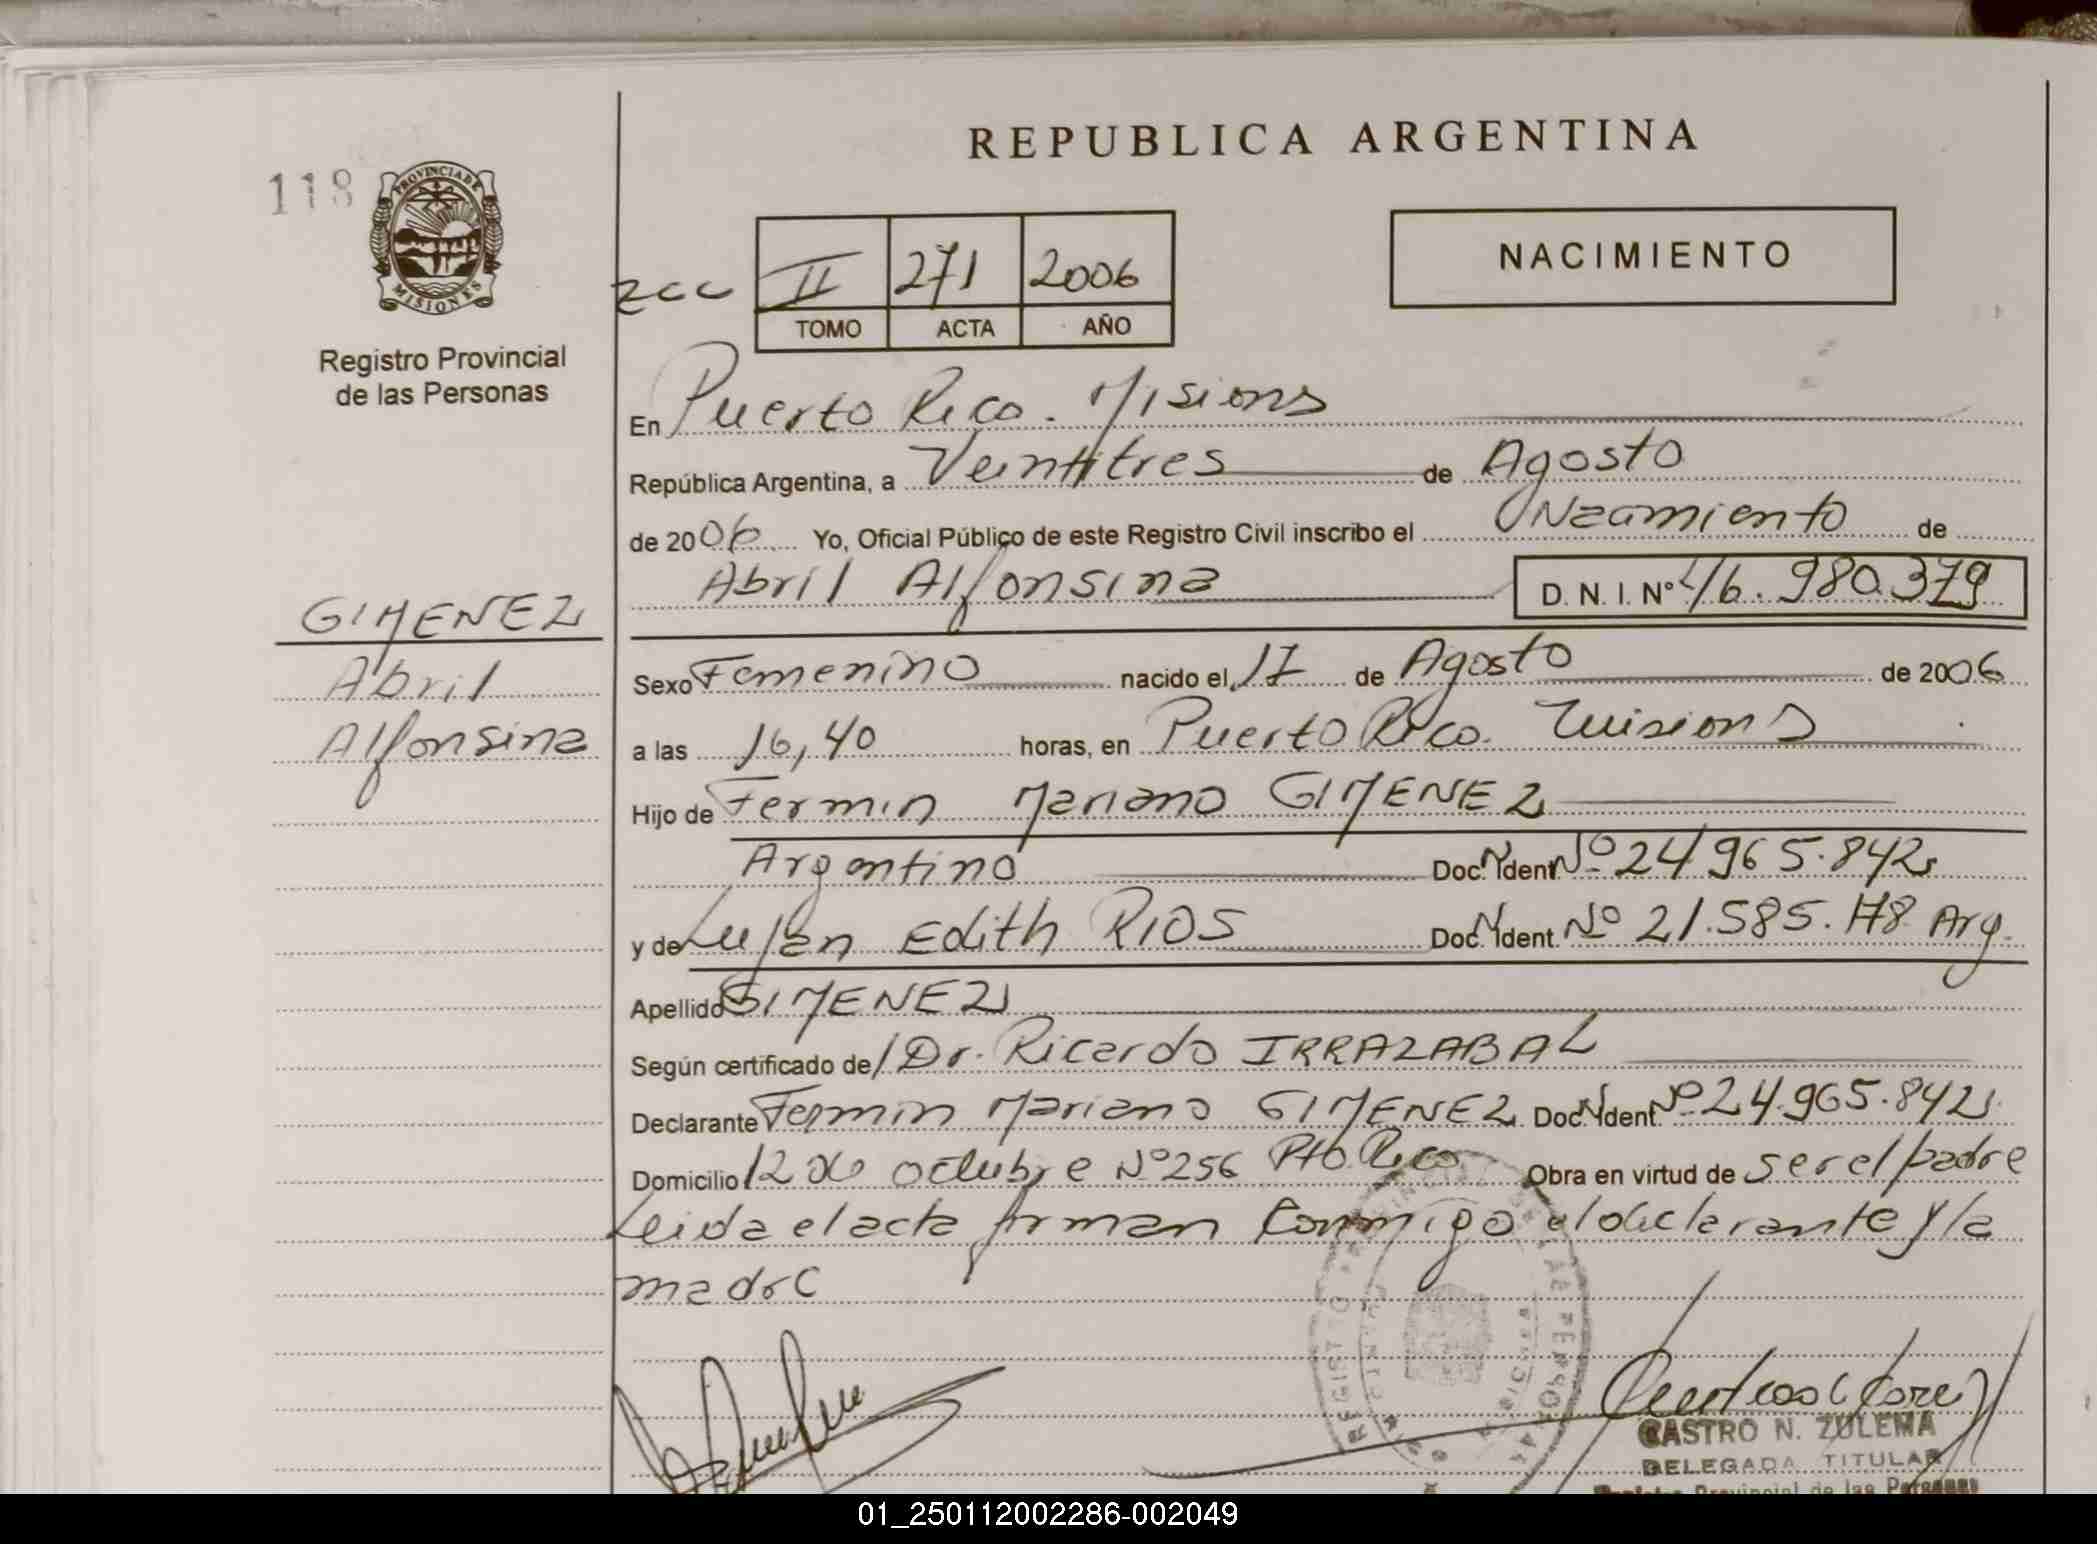 REPUBLICA ARGENTINA
118
PROVINCIA DE
MISIONES
Registro Provincial
de las Personas
NACIMIENTO
II 271 2006
TOMO ACTA AÑO
En Puerto Rico. Misions
República Argentina, a Veintitres de Agosto
de 2006 Yo, Oficial Público de este Registro Civil inscribo el de
Abril Alfonsina D. N. I. Nº 46.980.379
GIMENEZ
Abril
Alfonsina
Sexo Femenino nacido el 17 de Agosto de 2006
a las 16,40 horas, en Puerto Rico. Misions
Hijo de Fermin Mariano GIMENEZ
Argentino Doc. Ident. Nº 24965.842
y de Lujan Edith RIOS Doc. Ident. Nº 21.585.178 Arg.
Apellido GIMENEZ
Según certificado de Dr. Ricardo IRRAZABAL
Declarante Fermin Mariano GIMENEZ Doc. Ident. Nº 24.965.842
Domicilio 12 de octubre Nº 256 Pto Rico Obra en virtud de ser el padre
Leida el acta firman conmigo el declarante y la
madre
CASTRO N. ZULEMA
DELEGADA TITULAR
Registro Provincial de las Personas
01_250112002286-002049